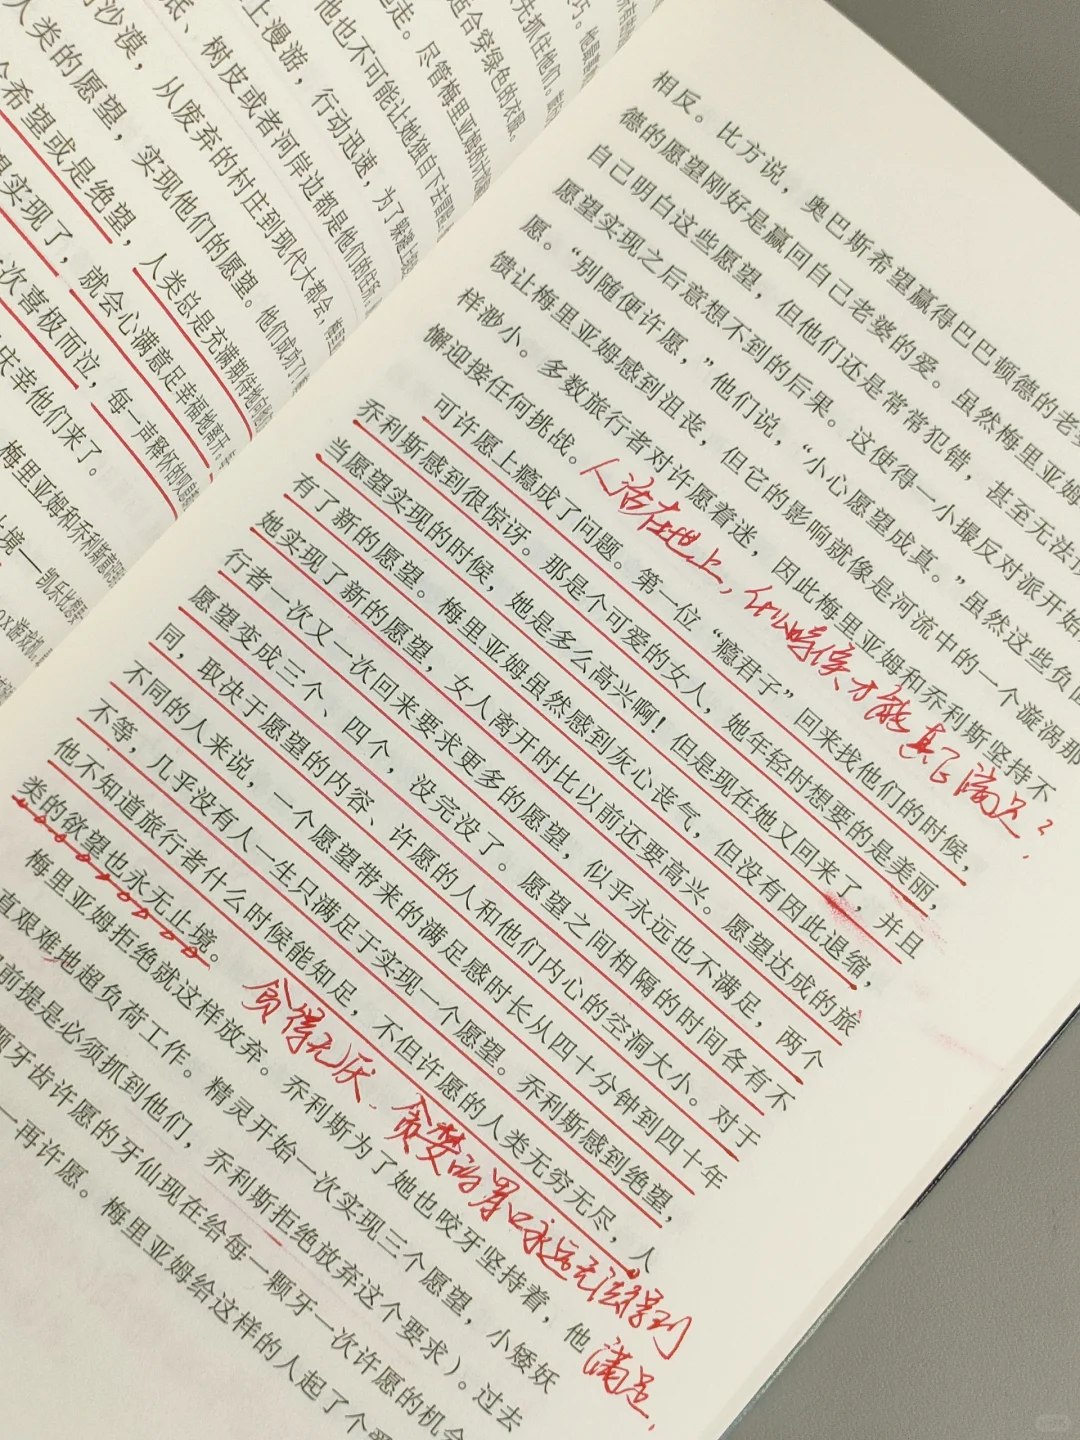 适合穿绿色的衣服。
走。尽管梅里亚姆的
他也不可能让她独自
上漫游，行动迅速，为了躲避
底、树皮或者河岸边都是他们的住所。
沙漠，从废弃的村庄到现代大都会，
人类的愿望，实现他们的愿望。他们成功了！
希望或是绝望，人类总是充满期待地
实现了，就会心满意足幸福地离开。
次喜极而泣，每一声释怀的
庆幸他们来了。
梅里亚姆和乔利斯
相反。比方说，奥巴斯希望赢得巴巴顿德的老婆
德的愿望刚好是赢回自己老婆的爱。虽然梅里亚姆
自己明白这些愿望，但他们还是常常犯错，甚至无法
愿望实现之后意想不到的后果。这使得一小撮反对派开始
愿。“别随便许愿，”他们说，“小心愿望成真。”虽然这些负面
馈让梅里亚姆感到沮丧，但它的影响就像是河流中的一个漩涡那
样渺小。多数旅行者对许愿着迷，因此梅里亚姆和乔利斯坚持不
懈迎接任何挑战。
人活在世上，什么时候才能真正满足？
可许愿上瘾成了问题。第一位“瘾君子”回来找他们的时候，
乔利斯感到很惊讶。那是个可爱的女人，她年轻时想要的是美丽，
当愿望实现的时候，她是多么高兴啊！但是现在她又回来了，并且
有了新的愿望。梅里亚姆虽然感到灰心丧气，但没有因此退缩，
她实现了新的愿望，女人离开时比以前还要高兴。愿望达成的旅
行者一次又一次回来要求更多的愿望，似乎永远也不满足，两个
愿望变成三个、四个，没完没了。愿望之间相隔的时间各有不
同，取决于愿望的内容、许愿的人和他们内心的空洞大小。对于
不同的人来说，一个愿望带来的满足感时长从四十分钟到四十年
不等，几乎没有人一生只满足于实现一个愿望。乔利斯感到绝望，
他不知道旅行者什么时候能知足，不但许愿的人类无穷无尽，人
类的欲望也永无止境。
贪得无厌，贪婪的胃口永远无法得到
满足，
梅里亚姆拒绝就这样放弃。乔利斯为了她也咬牙坚持着，他
直艰难地超负荷工作。精灵开始一次实现三个愿望，小矮妖
前提是必须抓到他们，乔利斯拒绝放弃这个要求）。过去
颗牙齿许愿的牙仙现在给每一颗牙一次许愿的机会
一再许愿。梅里亚姆给这样的人起了个